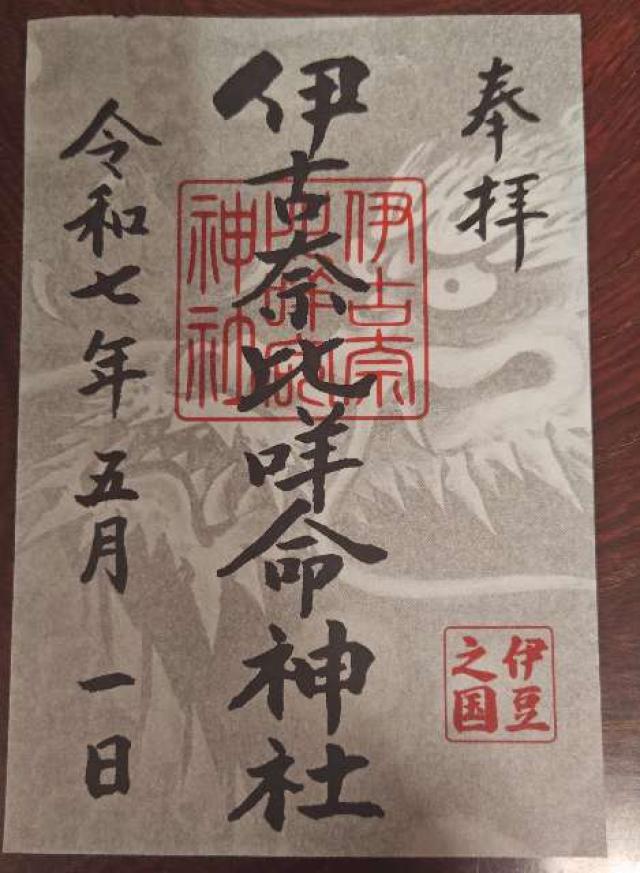 奉拝
伊古奈比咩命神社
伊古奈
比咩命
神社
令和七年五月一日
伊豆
之国